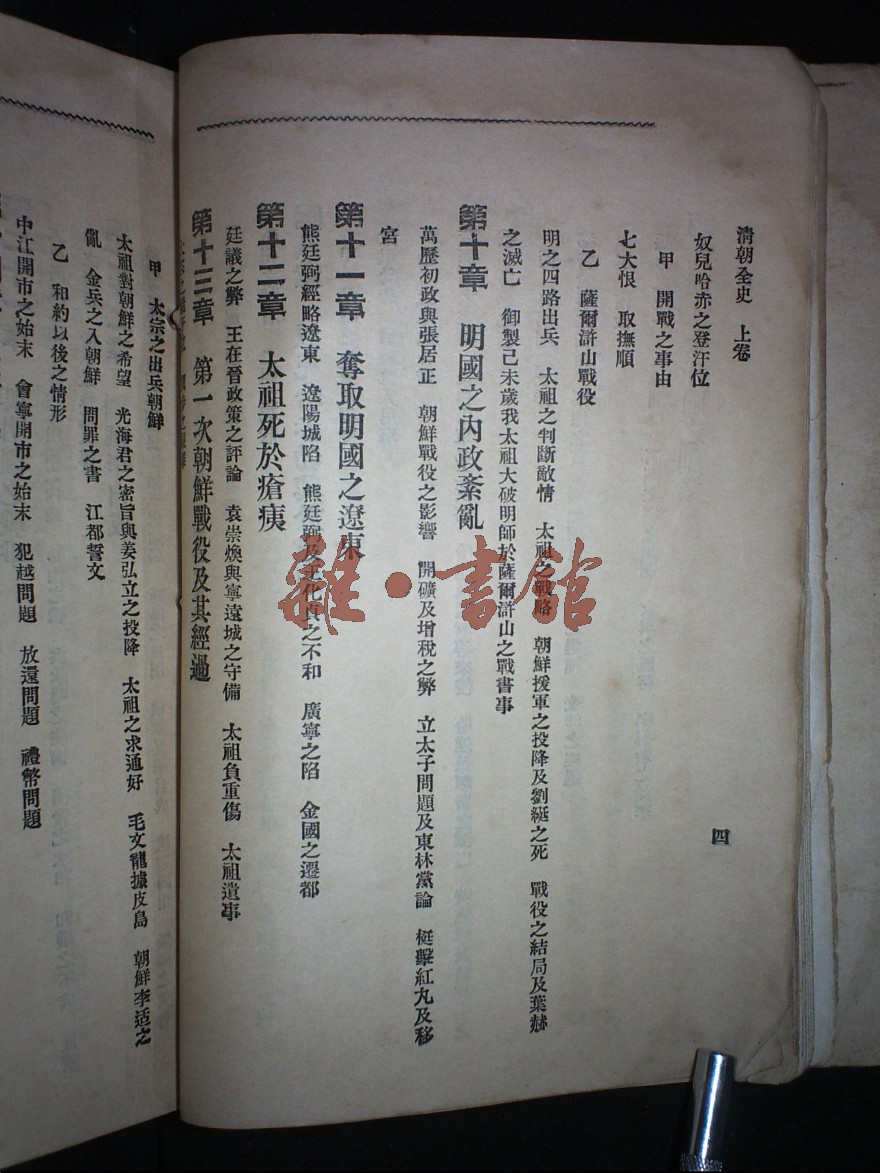 清朝全史　上卷
四
奴兒哈赤之登汗位
甲　開戰之事由
七大恨　取撫順
乙　薩爾滸山戰役
明之四路出兵　太祖之判斷敵情　太祖之戰略　朝鮮援軍之投降及劉綎之死　戰役之結局及葉赫
之滅亡　御製己未歲我太祖大破明師於薩爾滸山之戰書事
第十章　明國之內政紊亂
萬歷初政與張居正　朝鮮戰役之影響　開礦及增稅之弊　立太子問題及東林黨論　梃擊紅丸及移
宮
第十一章　奪取明國之遼東
熊廷弼經略遼東　遼陽城陷　熊廷弼及王化貞之不和　廣寧之陷　金國之遷都
第十二章　太祖死於瘡痍
廷議之弊　王在晉政策之評論　袁崇煥與寧遠城之守備　太祖負重傷　太祖遺事
第十三章　第一次朝鮮戰役及其經過
甲　太宗之出兵朝鮮
太祖對朝鮮之希望　光海君之密旨與姜弘立之投降　太祖之求通好　毛文龍據皮島　朝鮮李适之
亂　金兵之入朝鮮　問罪之書　江都誓文
乙　和約以後之情形
中江開市之始末　會寧開市之始末　犯越問題　放還問題　禮幣問題
雜·書館